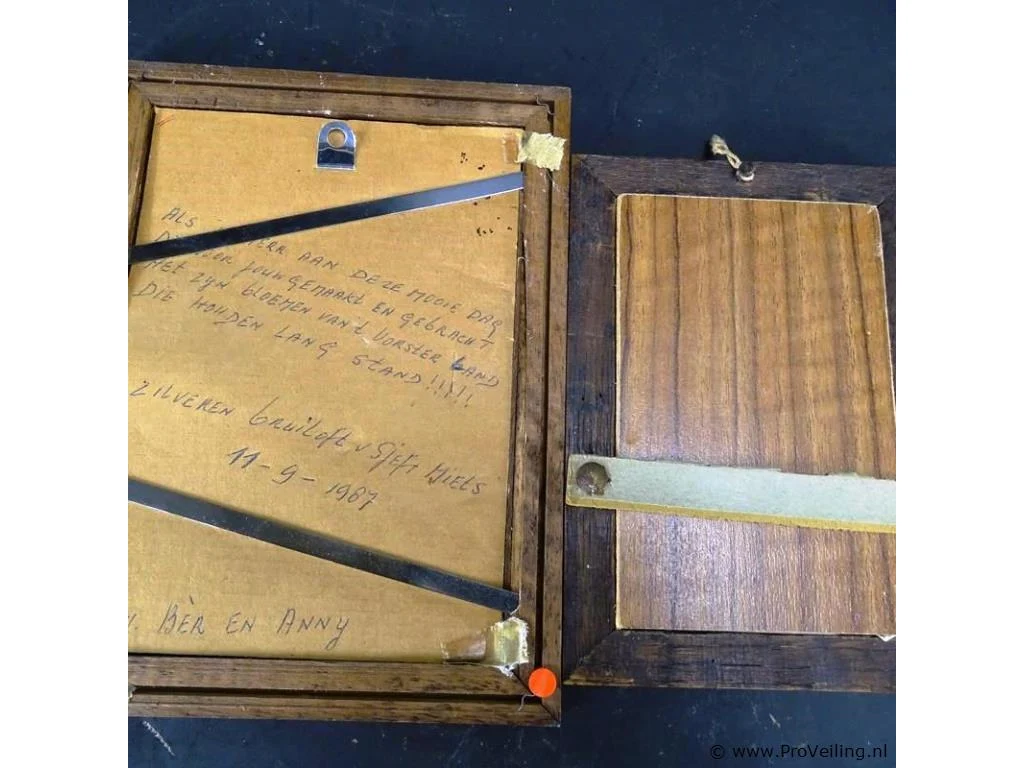 ALS AAN DEZE MOOIE DAG
VOOR JOUW GEMAAKT EN GEBRACHT
HET ZYN BLOEMEN VAN'T VORSTER LAND
DIE HOUDEN LANG STAND!!!!!
ZILVEREN bruiloft v Sjefs MIELS
11-9-1987
BÈR EN ANNY
© www.ProVeiling.nl